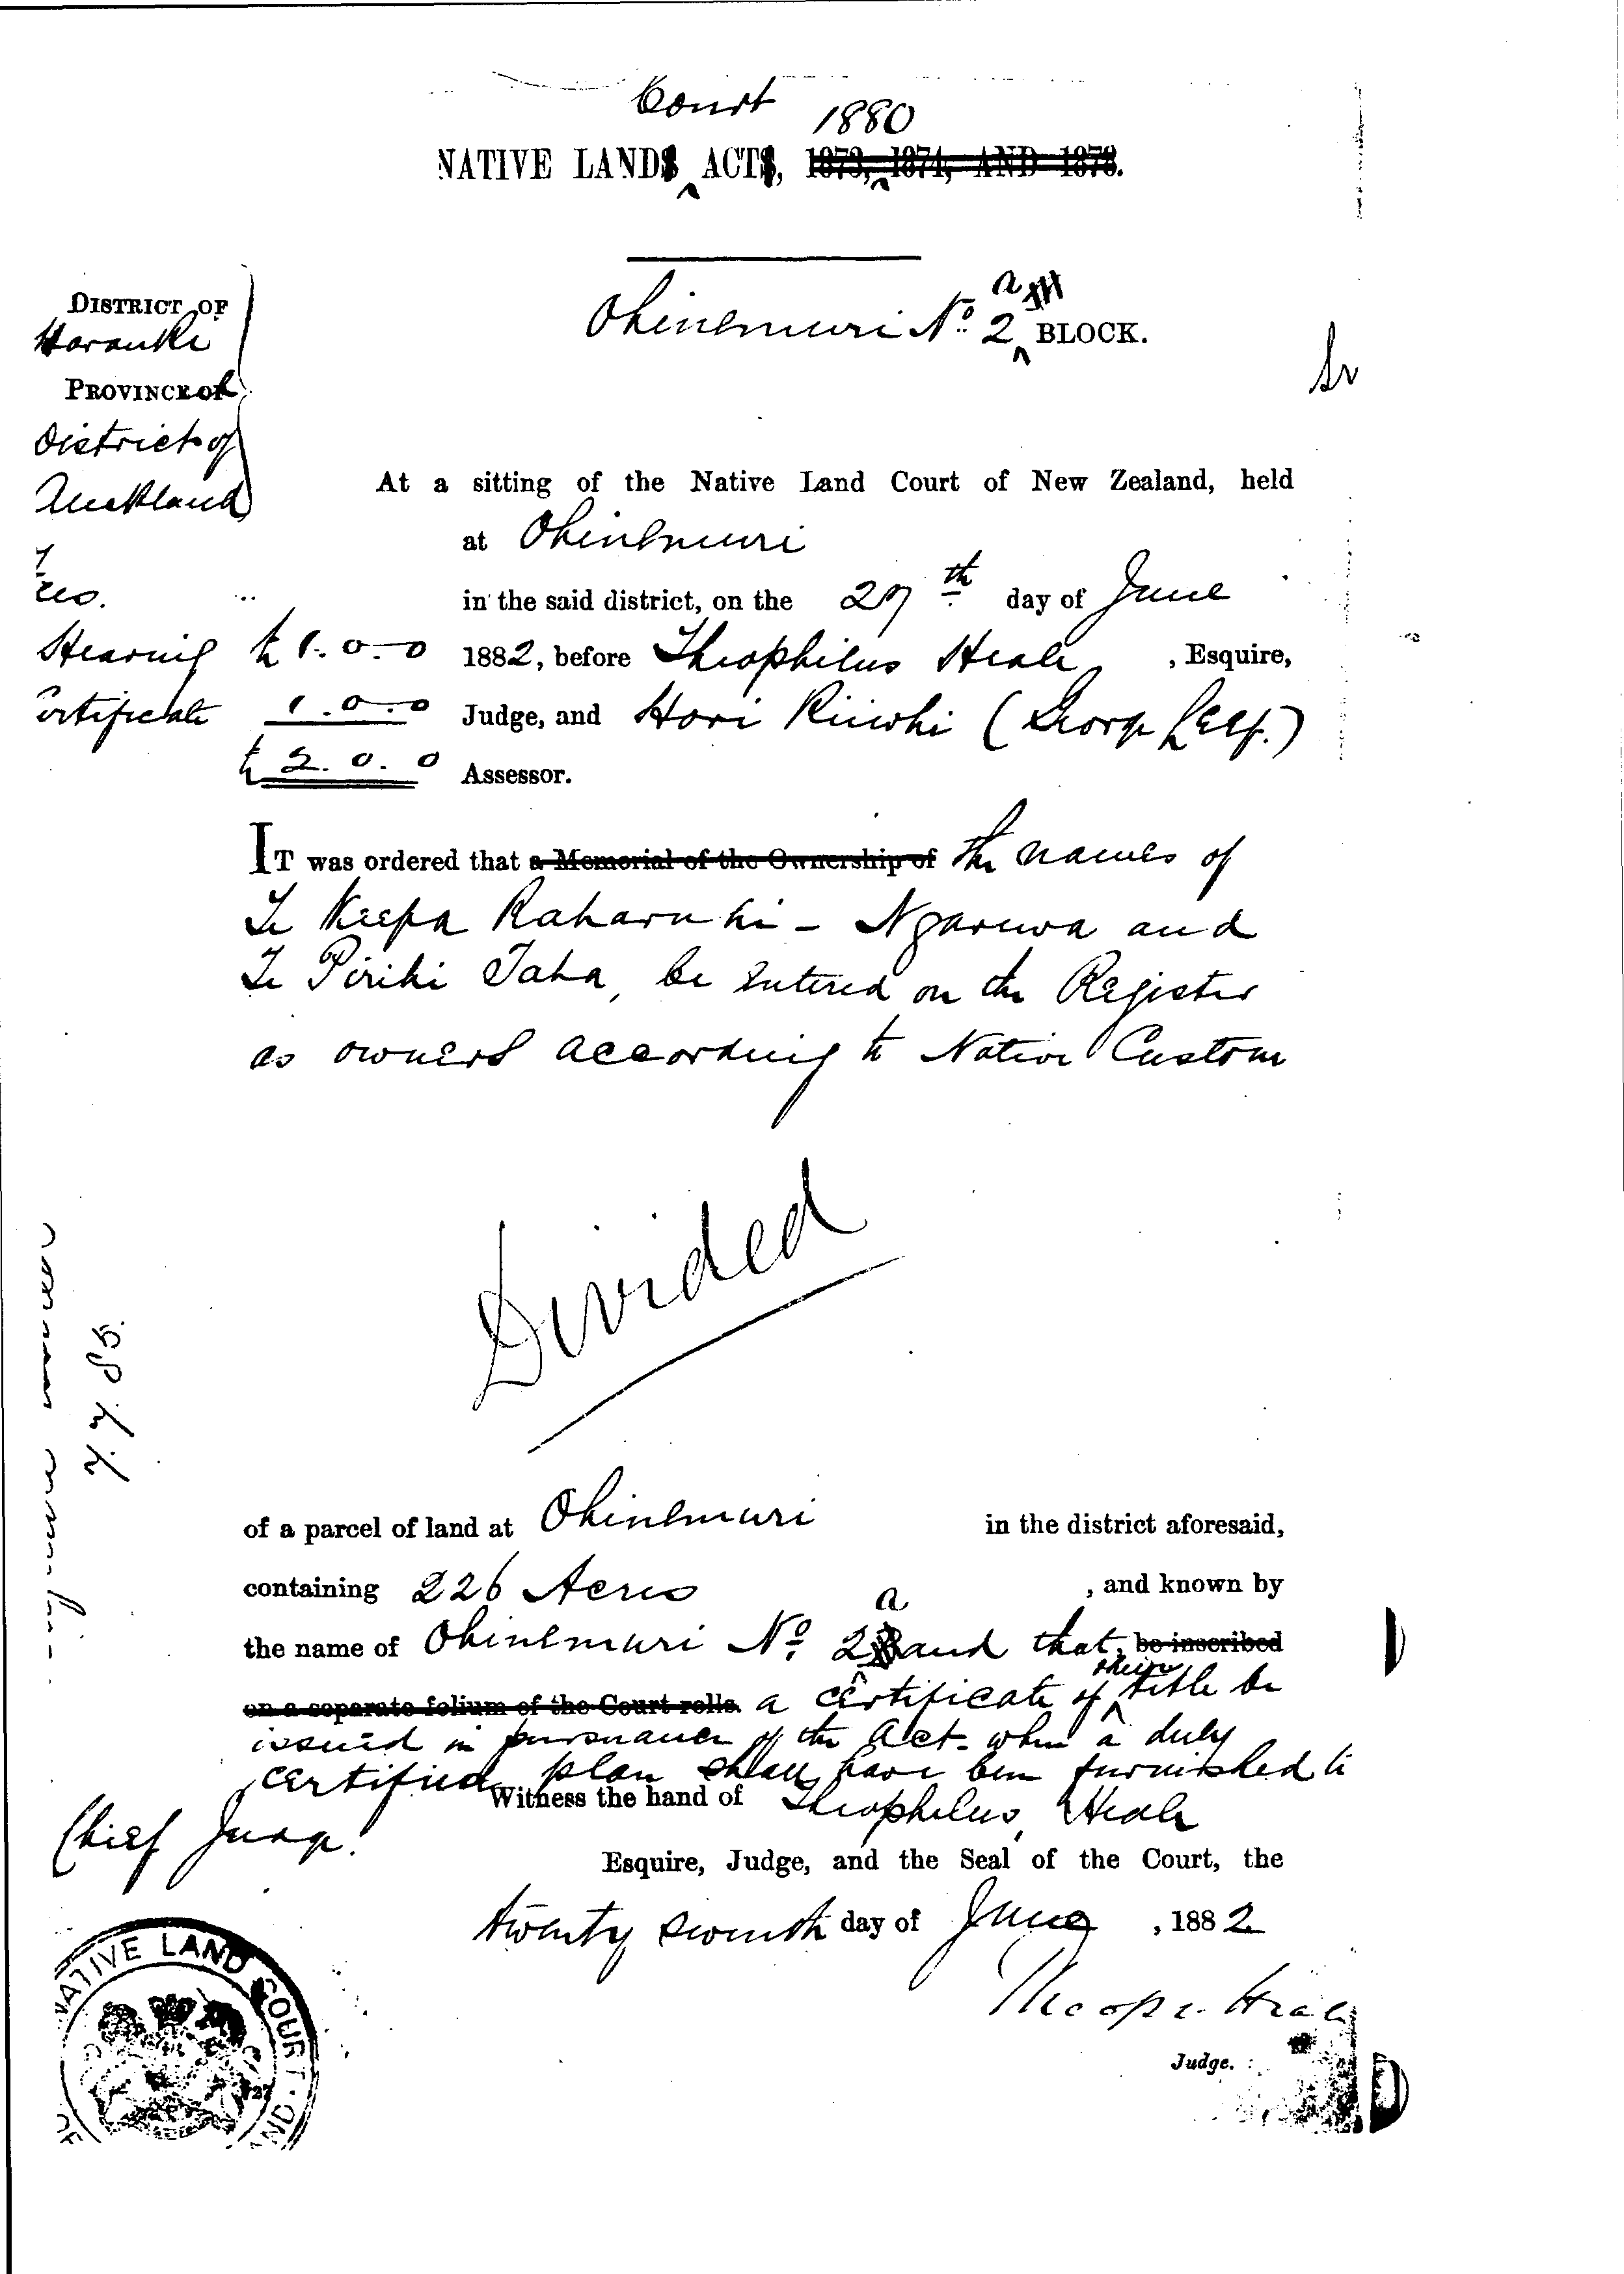 Court 1880
NATIVE LANDS ACTS, 1873, 1874, AND 1878.
DISTRICT OF
Hauraki
PROVINCE OF
District of
Auckland
Ohinemuri No. 2 a BLOCK.
At a sitting of the Native Land Court of New Zealand, held
at Ohinemuri
in the said district, on the 27th day of June
Hearing £1.0.0 1882, before Theophilus Heale, Esquire,
ertificate 1.0.0 Judge, and Hori Riiwhi (George )
£2.0.0 Assessor.
IT was ordered that a Memorial of the Ownership of the names of
Te Keepa Raharuhi - Ngaruwa and
Te Pirihi Taha, be entered on the Register
as owners according to Native Custom
Divided
7.7.85.
of a parcel of land at Ohinemuri in the district aforesaid,
containing 226 Acres, and known by
a
the name of Ohinemuri No. 2 and that, be inscribed
on a separate folium of the Court rolls. a certificate of their title be
issued in pursuance of the Act. when a duly
certified plan shall have been furnished to
Chief Judge.
Witness the hand of Theophilus Heale
Esquire, Judge, and the Seal of the Court, the
twenty seventh day of June, 1882
Theops. Heale
Judge.
NATIVE LAND COURT